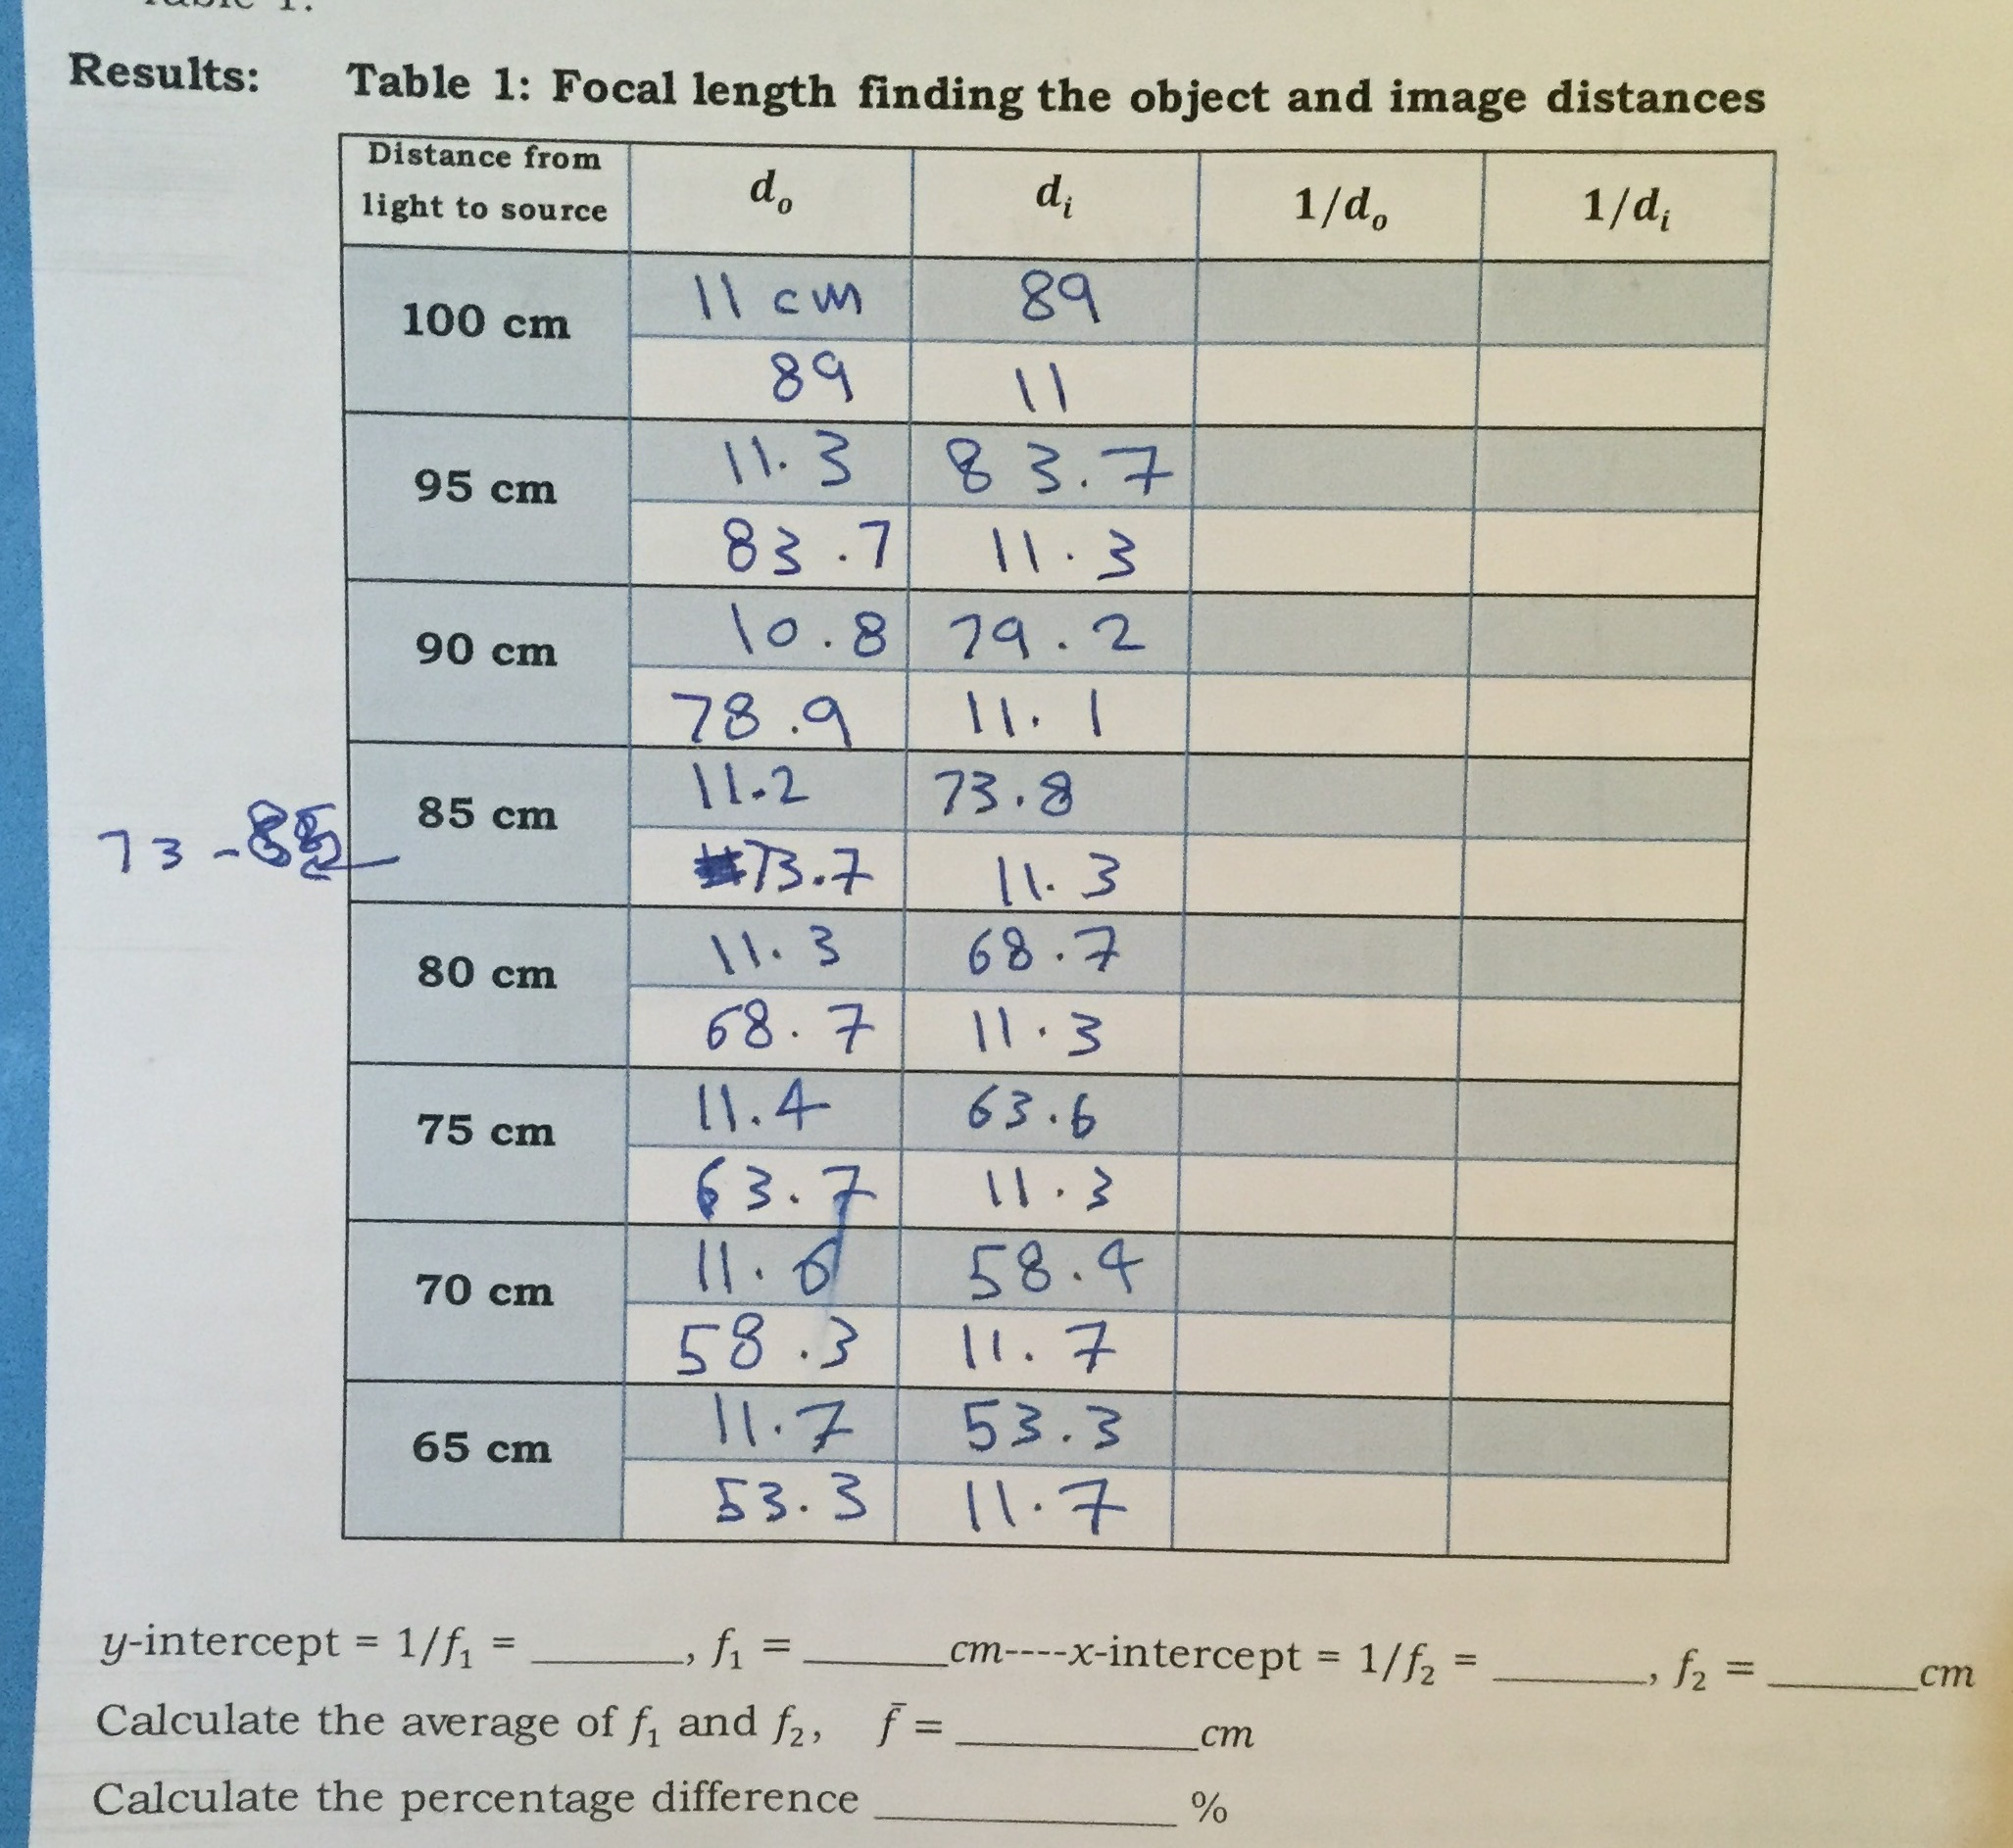 Table 1.
Results: Table 1: Focal length finding the object and image distances
Distance from light to source dₒ dᵢ 1/dₒ 1/dᵢ
100 cm 11 cm 89
89 11
95 cm 11.3 83.7
83.7 11.3
90 cm 10.8 79.2
78.9 11.1
85 cm 11.2 73.8
73 - 85
73.7 11.3
80 cm 11.3 68.7
68.7 11.3
75 cm 11.4 63.6
63.7 11.3
70 cm 11.6 58.4
58.3 11.7
65 cm 11.7 53.3
53.3 11.7
y-intercept = 1/f₁ = ______, f₁ = ______cm----x-intercept = 1/f₂ = ______, f₂ = ______cm
Calculate the average of f₁ and f₂, f̄ = __________cm
Calculate the percentage difference ____________ %